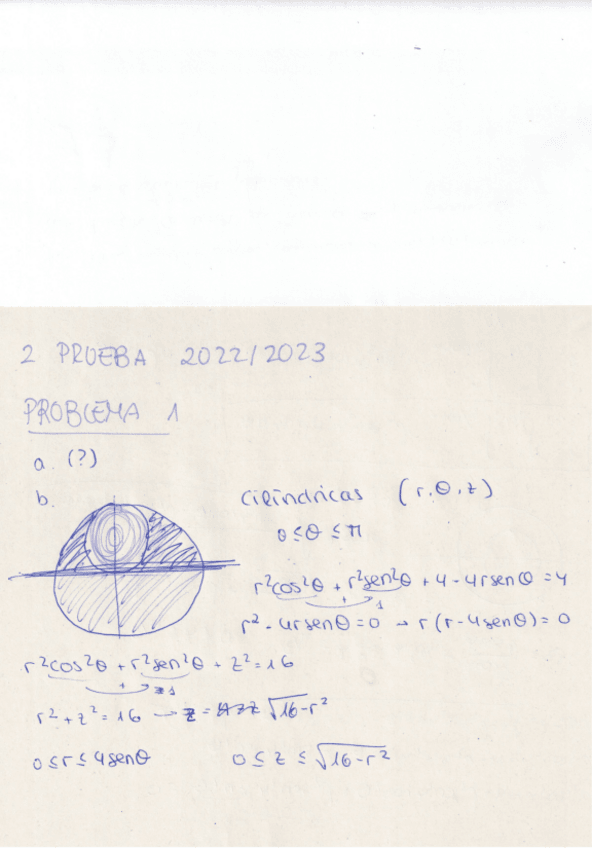 2 PRUEBA 2022/2023
PROBLEMA 1
a. (?)
b.
Cilíndricas (r, θ, z)
0 ≤ θ ≤ π
r²cos²θ + r²sen²θ + 4 - 4rsenθ = 4
+ 1
r² - 4rsenθ = 0 → r(r - 4senθ) = 0
r²cos²θ + r²sen²θ + z² = 16
+ 1
r² + z² = 16 → z = √16-r²
0 ≤ r ≤ 4senθ 0 ≤ z ≤ √16-r²